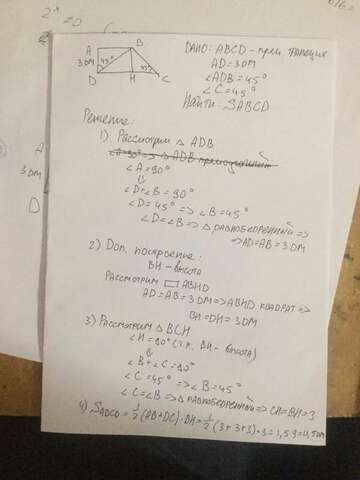 2ˣ = 0
A
B
3 ДМ
45°
45°
D
H
C
ДАНО: ABCD - прям. трапеция
AD = 3 ДМ
∠ADB = 45°
∠C = 45°
Найти: SABCD
Решение:
1) Рассмотрим △ ADB
∠A = 90° => △ ADB прямоугольный
∠A = 90°
⇓
∠D + ∠B = 90°
∠D = 45° => ∠B = 45°
∠D = ∠B => △ равнобедренный =>
=> AD = AB = 3 ДМ
2) Доп. построение:
BH - высота
Рассмотрим ▭ ABHD
AD = AB = 3 ДМ => ABHD. квадрат =>
BH = DH = 3 ДМ
3) Рассмотрим △ BCH
∠H = 90° (т.к. BH - высота)
⇓
∠B + ∠C = 90°
∠C = 45° => ∠B = 45°
∠C = ∠B => △ равнобедренный => CH = BH = 3
4) SABCD = 1/2 (AB + DC) · BH = 1/2 (3 + 3 + 3) · 3 = 1,5 · 9 =
A
3 ДМ
D